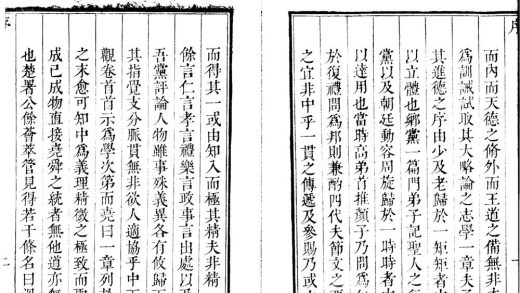 序
而內而天德之脩外而王道之備無非
為訓誡試取其大略論之志學一章夫
其進德之序由少及老歸於一矩矩者
以立體也鄉黨一篇門弟子記聖人之行
黨以及朝廷動容周旋歸於一時時者
以達用也當時高弟首推顏子乃問為
於復禮問為邦則兼酌四代夫節文之
之宜非中乎一貫之傳遞及參賜乃或
而得其一或由知入而極其精夫非精
餘言仁言孝言禮樂言政事言出處以
吾黨評論人物雖事殊義異各有攸歸
其指覺支分脈貫無非欲人適協乎中
觀卷首首示為學次第而堯曰一章列
之末愈可知中為義理精微之極致而
成已成物直接堯舜之統者無他道亦
也楚署公餘薈萃管見得若干條名曰
序